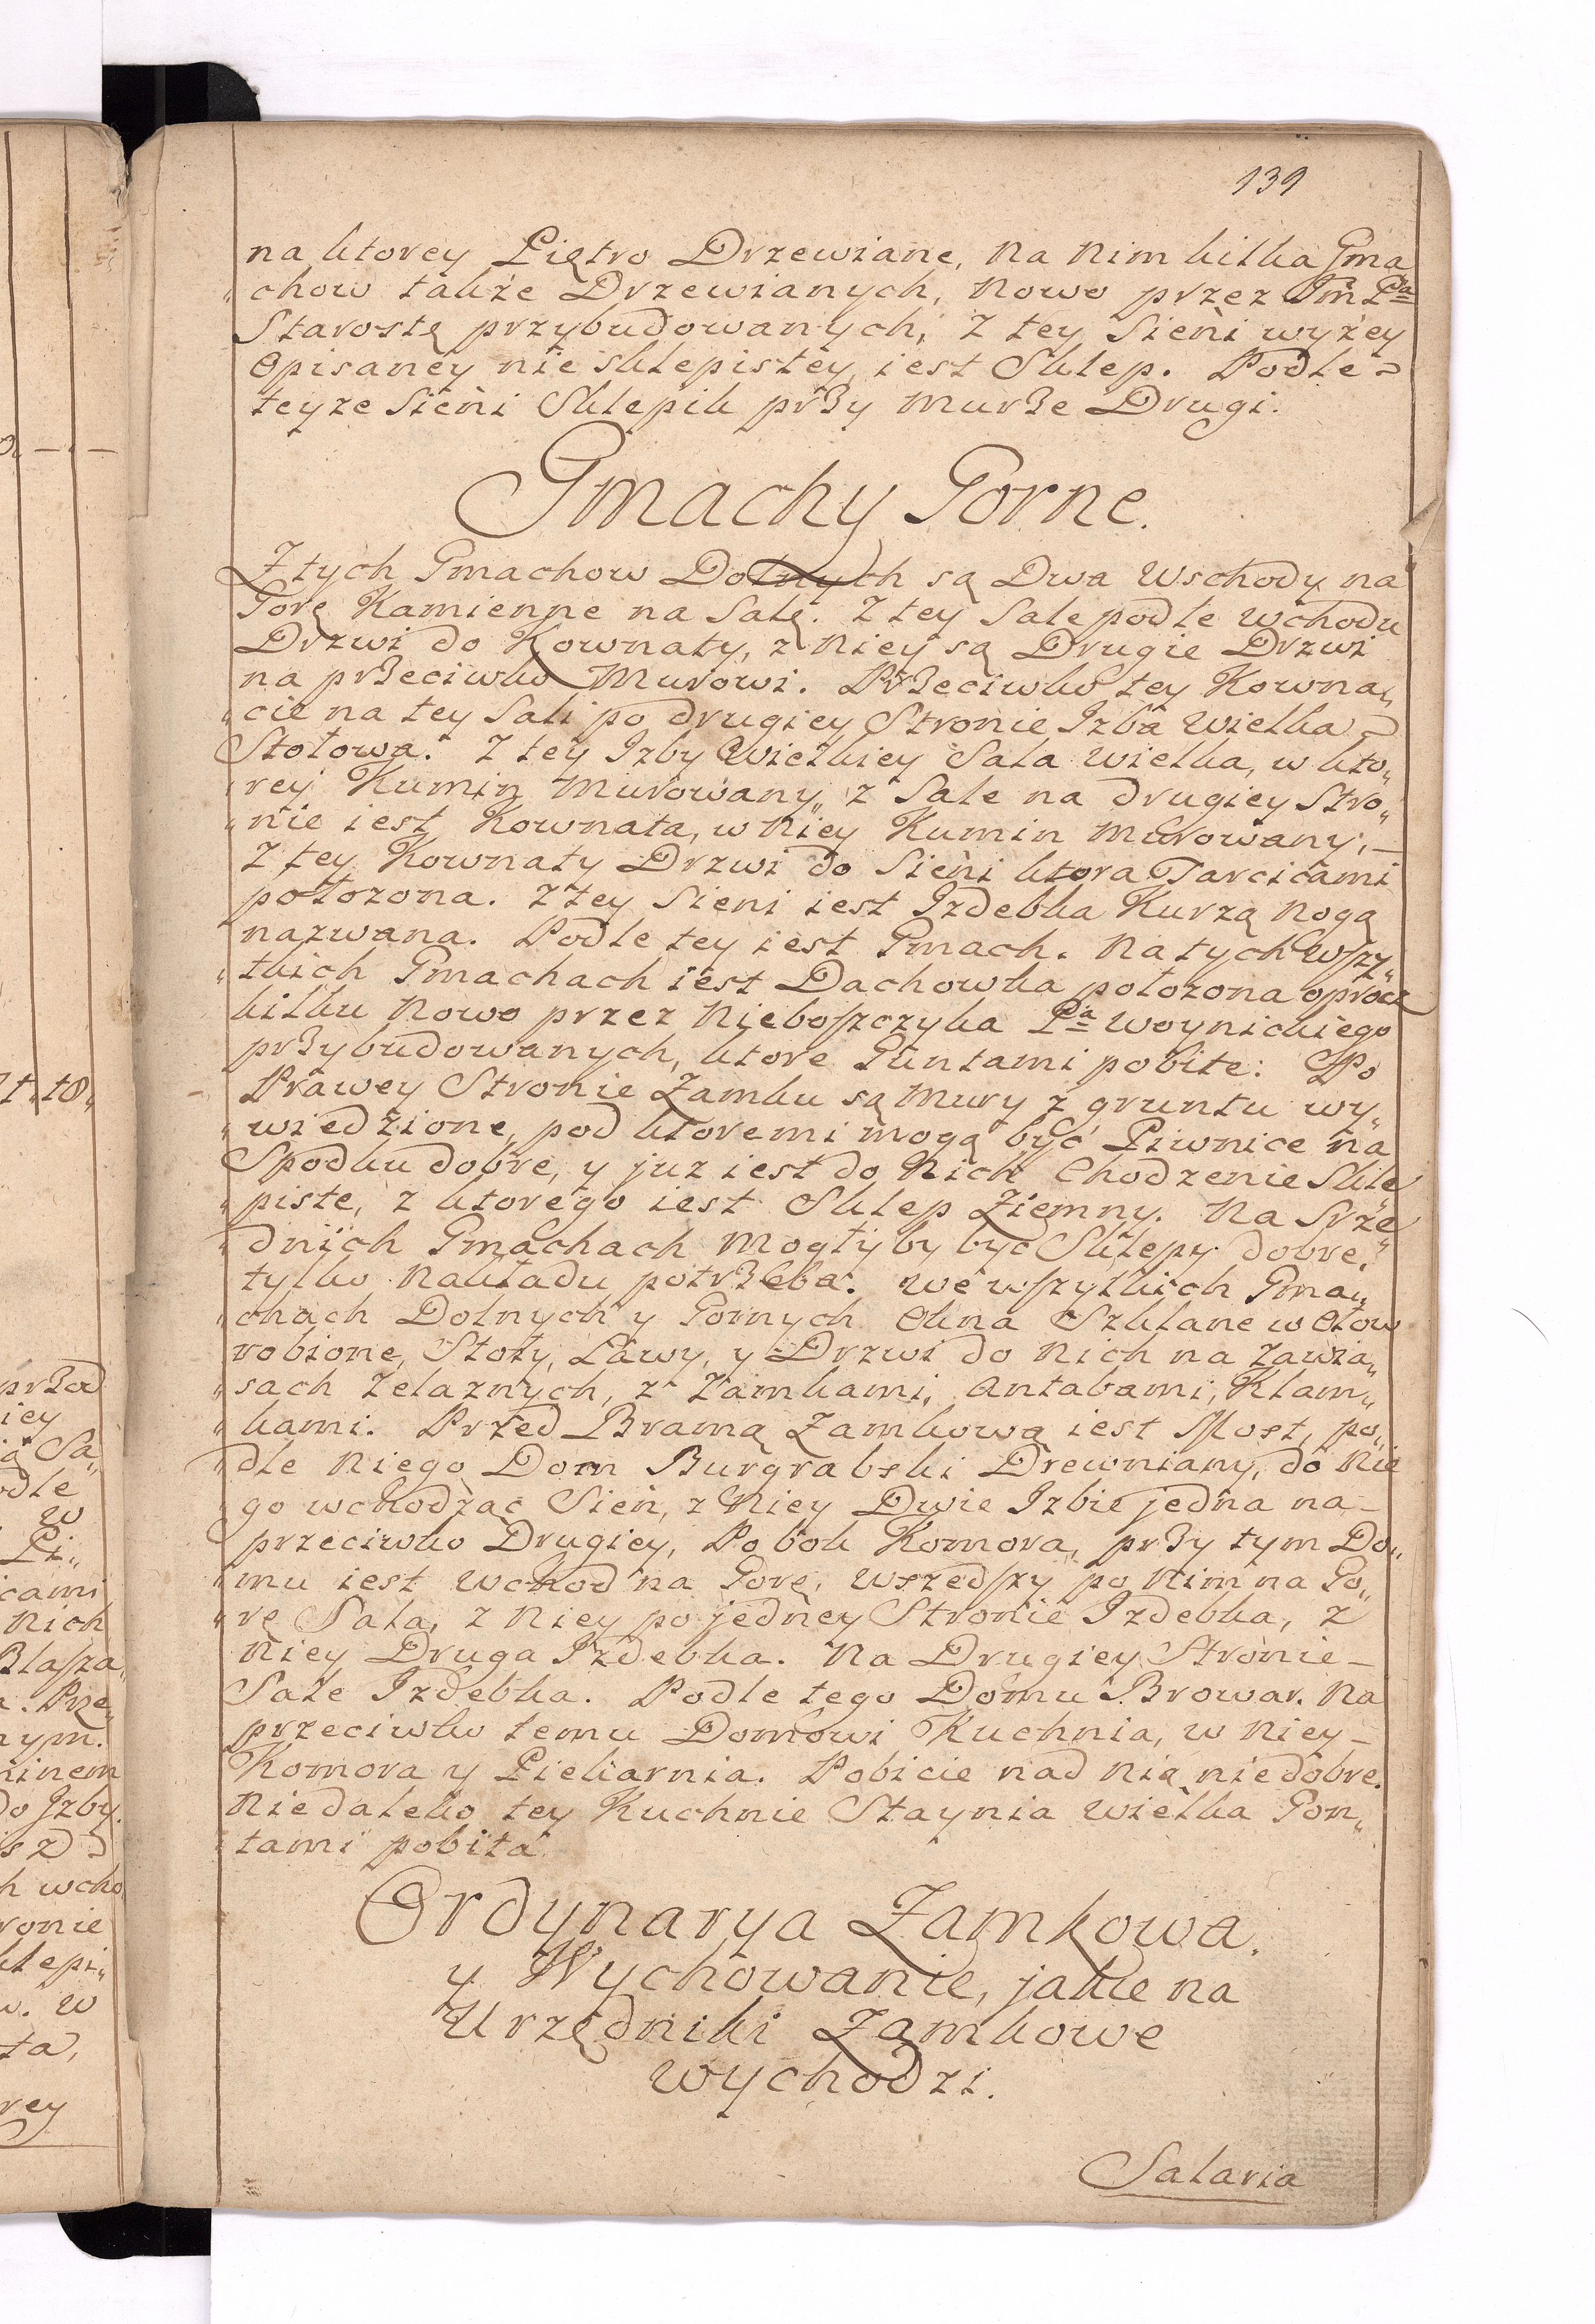 139
na ktorey Piętro Drzewiane, na nim kilka Gma„
„chow także Drzewianych, nowo przez Jm Pa
Starostę przybudowanych, Z tey Sieni wyżey
Opisaney nie sklepistey, iest Sklep. Podle-
teyże Sieni Sklepik przy Murze Drugi.
Gmachy Gorne.
Z tych Gmachow Dolnych są Dwa Wschody na
Gorę Kamienne na Salę. Z tey Sale podle Wchodu
Drzwi do Kownaty, z niey są Drugie Drzwi
na przeciwko Murowi. Przeciwko tey Kowna„
„cie na tey Sali po drugiey Stronie Izba Wielka
Stołowa. Z tey Izby Wielkiey Sala Wielka, w kto„
„rey Kumin Murowany, z Sale na drugiey Stro„
„nie iest Kownata, w niey Kumin Murowany,-
Z tey Kownaty Drzwi do Sieni ktora Tarcicami
położona. Z tey Sieni iest Izdebka Kurzą Nogą
nazwana. Podle tey iest Gmach. Na tych Wszy„
„tkich Gmachach iest Dachowka położona oprocz
kilku Nowo przez Nieboszczyka Pa Woynickiego
przybudowanych, ktore Guntami pobite: Po
Prawey Stronie Zamku są Mury z gruntu wy„
„wiedzione, pod ktoremi mogą być Piwnice na
Spodku dobre, y juz iest do Nich Chodzenie Skle„
„piste, z ktorego iest Sklep Ziemny. Na Srze„
„dnich Gmachach Mogłyby być Sklepy dobre,
tylko Nakładu potrzeba. We wszytkich Gma„
„chach Dolnych y Gornych Okna Szklane w Ołow
robione, Stoły, Ławy, y Drzwi do Nich na Zawia„
„sach Zelaznych, z Zamkami, Antabami, Klam„
„kami. Przed Bramą Zamkową iest Most, po„
„dle Niego Dom Burgrabski Drewniany, do Nie
„go wchodząc Sień, z Niey Dwie Izbie jedna na-
przeciwko Drugiey, Po bok Komora, przy tym Do„
„mu iest Wchod na Gorę, Wszedszy po Nim na Go„
„rę Sala, z Niey po jedney Stronie Izdebka, z
Niey Druga Izdebka. Na Drugiey Stronie-
Sale Izdebka. Podle tego Domu Browar. Na
przeciwko temu Domowi Kuchnia, w Niey-
Komora y Piekarnia. Pobicie nad Nią niedobre.
Niedaleko tey Kuchnie Staynia Wielka Gon„
„tami pobita
Ordynarya Zamkowa.
y Wychowanie, jakie na
Urzędniki Zamkowe
wychodzi.
Salaria